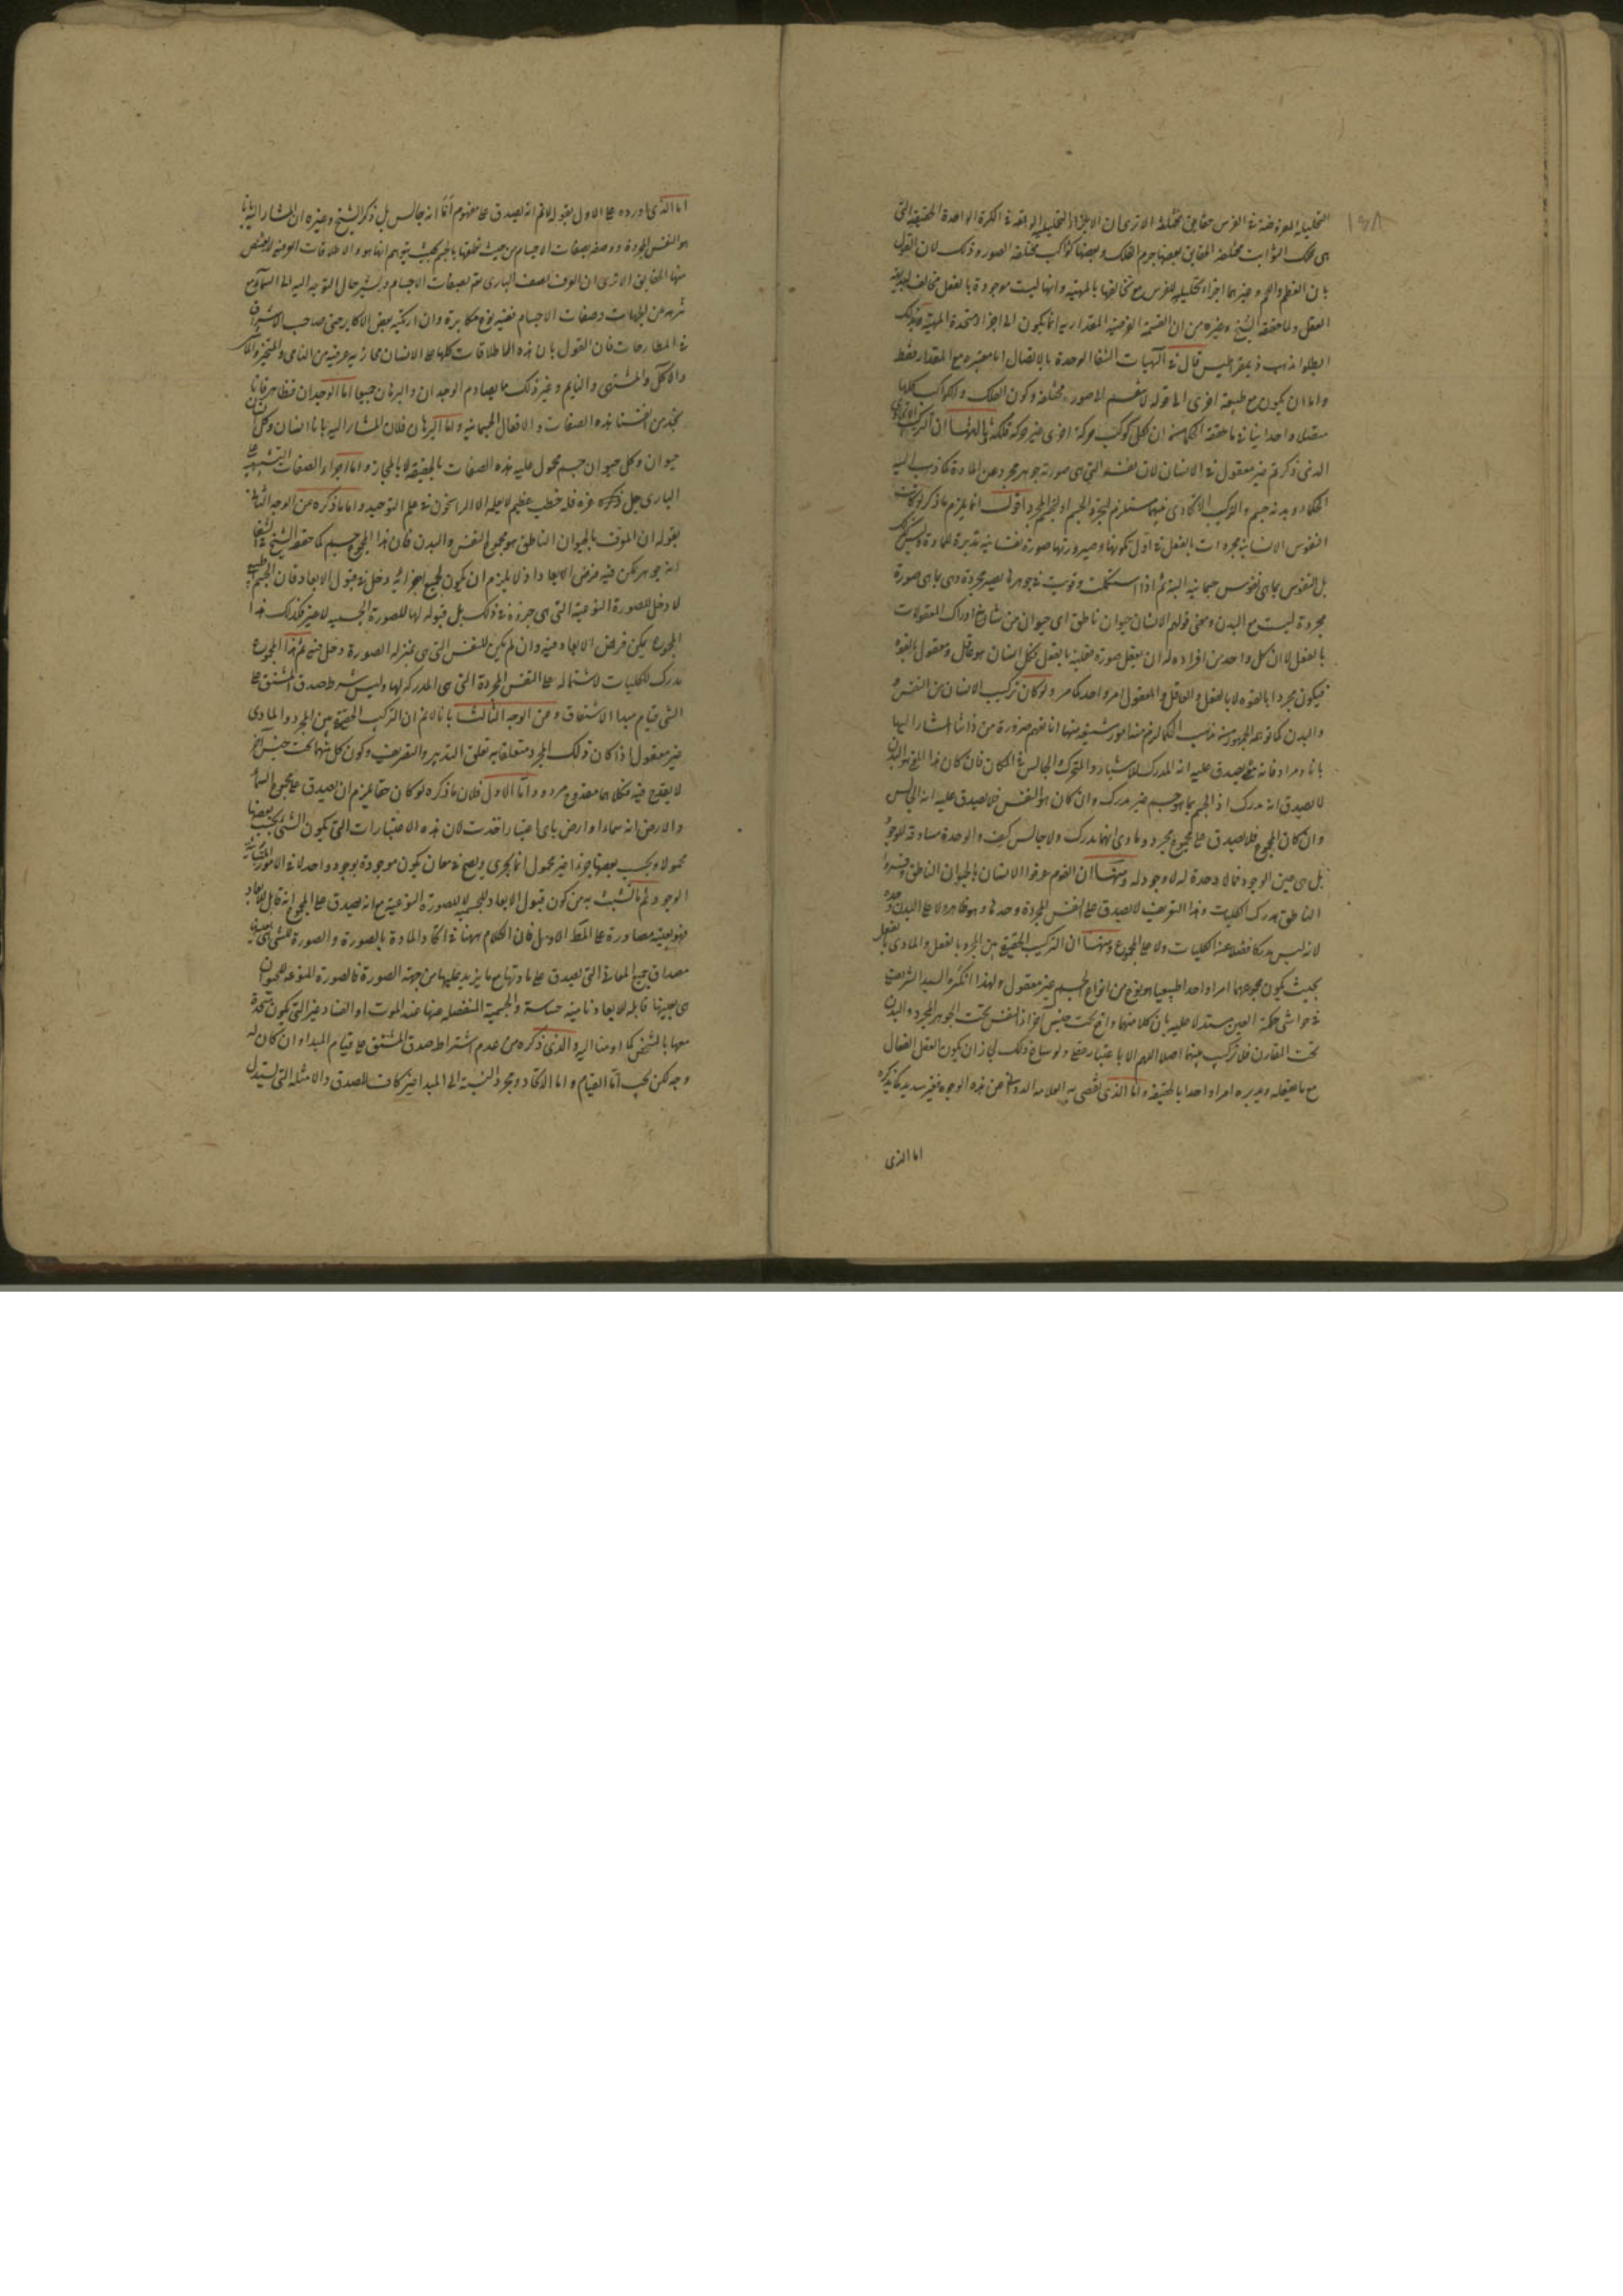 التحليلية المفروضة في الفرس حقايق مختلفة الا ترى ان الاجزاء التحليلية الواقعة في الكرة الواحدة الحقيقية التي
١٥٨
هى فلك الثوابت مختلفة الحقايق بعضها جرم الفلك وبعضها كواكب مختلفة الصور وذلك لان القول
بان العظم واللحم وغيرهما اجزاء تحليلية للفرس مع تخالفها بالمهية وانها ليست موجودة بالفعل مخالف لبديهة
العقل ولما حققه الشيخ وغيره من ان القسمة الوهمية المقدارية انما يكون الى اجزاء متحدة المهية وبذلك
ابطلوا مذهب ذيمقراطيس قال في آلهيات الشفا الوحدة بالاتصال اما معتبرة مع المقدار فقط
واما ان يكون مع طبيعة اخرى الى قوله لا ينقسم الى صور مختلفة وكون الفلك والكواكب كلها
متصلا واحدا ينافي ما حققه الحكماء من ان لكل كوكب حركة اخرى غير حركة فلكه ثالثها ان التركيب الاتحادى
الذى ذكرتم غير معقول في الانسان لان نفسه التي هى صورته جوهر مجرد عن المادة كما ذهب اليه
الحكماء وبدنه جسم والتركيب الاتحادى فيهما مستلزم لتجرد الجسم او تجسم المجرد اقول انما يلزم ما ذكر لو كانت
النفوس الانسانية مجردات بالفعل في اول تكونها وصيرورتها صورة نفسانية مدبرة للمادة وليس كذلك
بل النفوس بما هى نفوس جسمانية البتة ثم اذا استكملت وقويت في جوهرها يصير مجردة وهى بما هى صورة
مجردة ليست مع البدن ومعنى قولهم الانسان حيوان ناطق اى حيوان من شانه ادراك المعقولات
بالفعل لا ان كل واحد من افراده له ان يعقل صورة عقلية بالفعل فكل انسان هو عاقل ومعقول بالقوة
فيكون مجردا بالقوة لا بالفعل والعاقل والمعقول امر واحد كما مر ولو كان تركيب الانسان من النفس
والبدن كما توهمه الجمهور من مذهب الحكما لزم منه امور شنيعة منها انا نفهم ضرورة من ذاتنا المشار اليها
بانا ومرادفاته معنى يصدق عليه انه المدرك للاشياء والمتحرك والجالس في المكان فان كان هذا المعنى هو البدن
لا يصدق انه مدرك اذ الجسم بما هو جسم غير مدرك وان كان هو النفس فلا يصدق عليه انه الجالس
وان كان المجموع فلا يصدق على مجموع مجرد ومادى انهما مدرك ولا جالس كيف والوحدة مساوقة للوجود
بل هى عين الوجود فما لا وحدة له لا وجود له ومنها ان القوم عرفوا الانسان بالحيوان الناطق وفسروا
الناطق بمدرك الكليات وهذا التعريف لا يصدق على النفس المجردة وحدها وهو ظاهر ولا على البدن وحده
لانه ليس مدركا فضلا عن الكليات ولا على المجموع ومنها ان التركيب الحقيقي بين المجرد بالفعل والمادى بالفعل
بحيث يكون مجموعهما امرا واحدا طبيعيا هو نوع من انواع الجسم غير معقول ولهذا انكره السيد الشريف
في حواشى حكمة العين مستدلا عليه بان كلا منهما واقع تحت جنس آخر اذ النفس تحت الجوهر المجرد والبدن
تحت المقارن فلا تركيب بينهما اصلا اللهم الا باعتبار عقلى ولو ساغ ذلك لجاز ان يكون العقل الفعال
مع ما يعقله ويدبره امرا واحدا بالحقيقة واما الذى تفصى به العلامة الدوانى عن هذه الوجوه فغير سديد كما نذكره
اما الذى
اما الذى اورده على الاول بقوله لا نم انه يصدق على مفهوم أنا انه جالس بل ذكر الشيخ وغيره ان المشار اليه بانا
هو النفس المجردة ووصفه بصفات الاجسام من حيث تعلقها بالجسم بحيث يتوهم انها هو والاطلاقات العرفية لا يقتنص
منها الحقايق الا ترى ان العرف يصف البارى تعم بصفات الاجسام ويشير حال التوجه اليه الى السماء مع
تنزهه عن الجهات وصفات الاجسام ففيه نوع مكابرة وان ارتكبه بعض الاكابر حتى صاحب الاشراق
في المطارحات فان القول بان هذه الاطلاقات كلها على الانسان مجازية عرفية من النامى والمتحيز والماكر
والآكل والمشتهى والنايم وغير ذلك مما يصادم الوجدان والبرهان جميعا اما الوجدان فظاهر فانا
نجد من انفسنا هذه الصفات والافعال الجسمانية واما البرهان فلان المشار اليه بانا انسان وكل انسان
حيوان وكل حيوان جسم محمول عليه هذه الصفات بالحقيقة لا بالمجاز واما اجراء الصفات التشبيهية على
البارى جل ذكره وعزه فله خطب عظيم لا يعلمه الا الراسخون في علم التوحيد واما ما ذكره من الوجه الثانى
بقوله ان المعرف بالحيوان الناطق هو مجموع النفس والبدن فان هذا المجموع جسم كما حققه الشيخ في الشفا
انه جوهر يمكن فيه فرض الابعاد اذ لا يلزم ان يكون لجميع اجزائه دخل في قبول الابعاد فان الجسم الطبيعى
لا دخل للصورة النوعية التى هى جزؤه في ذلك بل قبوله لها للصورة الجسمية لا غير فكذلك هذا
المجموع يمكن فرض الابعاد فيه وان لم يكن للنفس التى هى بمنزلة الصورة دخل فيه ثم هذا المجموع
مدرك للكليات لاشتماله على النفس المجردة التى هى المدركة لها وليس شرط صدق المشتق على
الشى قيام مبدا الاشتقاق وعن الوجه الثالث بانا لا نم ان التركيب الحقيقي بين المجرد والمادى
غير معقول اذا كان ذلك المجرد متعلقا به تعلق التدبير والتصريف وكون كل منهما تحت جنس آخر
لا يقدح فيه فكلاهما مقدوح مردود اما الاول فلان ما ذكره لو كان حقا لزم ان يصدق على مجموع السماء
والارض انه سماء او ارض باى اعتبار اخذت لان هذه الاعتبارات التى يكون الشئ بحسب بعضها
محمولا وبحسب بعضها جزءا غير محمول انما يجرى ويصح في معان يكون موجودة بوجود واحد لا في الامور المتباينة
الوجود ثم ما تشبث به من كون قبول الابعاد للجسمية لا للصورة النوعية مع انه يصدق على المجموع انه قابل للابعاد
فهو بعينه مصادرة على المط الاول فان الكلام ههنا في اتحاد المادة بالصورة والصورة للشى هى بعينها
مصداق جميع المعانى التى يصدق على مادتها مع ما يزيد عليها من جهة الصورة فالصورة المنوعة للحيوان
هى بعينها قابلة للابعاد نامية حساسة والجسمية المنفصلة عنها عند الموت او الفساد غير التى يكون متحدة
معها بالشخص كما اومئنا اليه والذى ذكره من عدم اشتراط صدق المشتق على قيام المبدا وان كان له
وجه لكن يجب اما القيام واما الاتحاد ومجرد النسبة الى المبدا غير كاف للصدق والامثلة التى يستدل